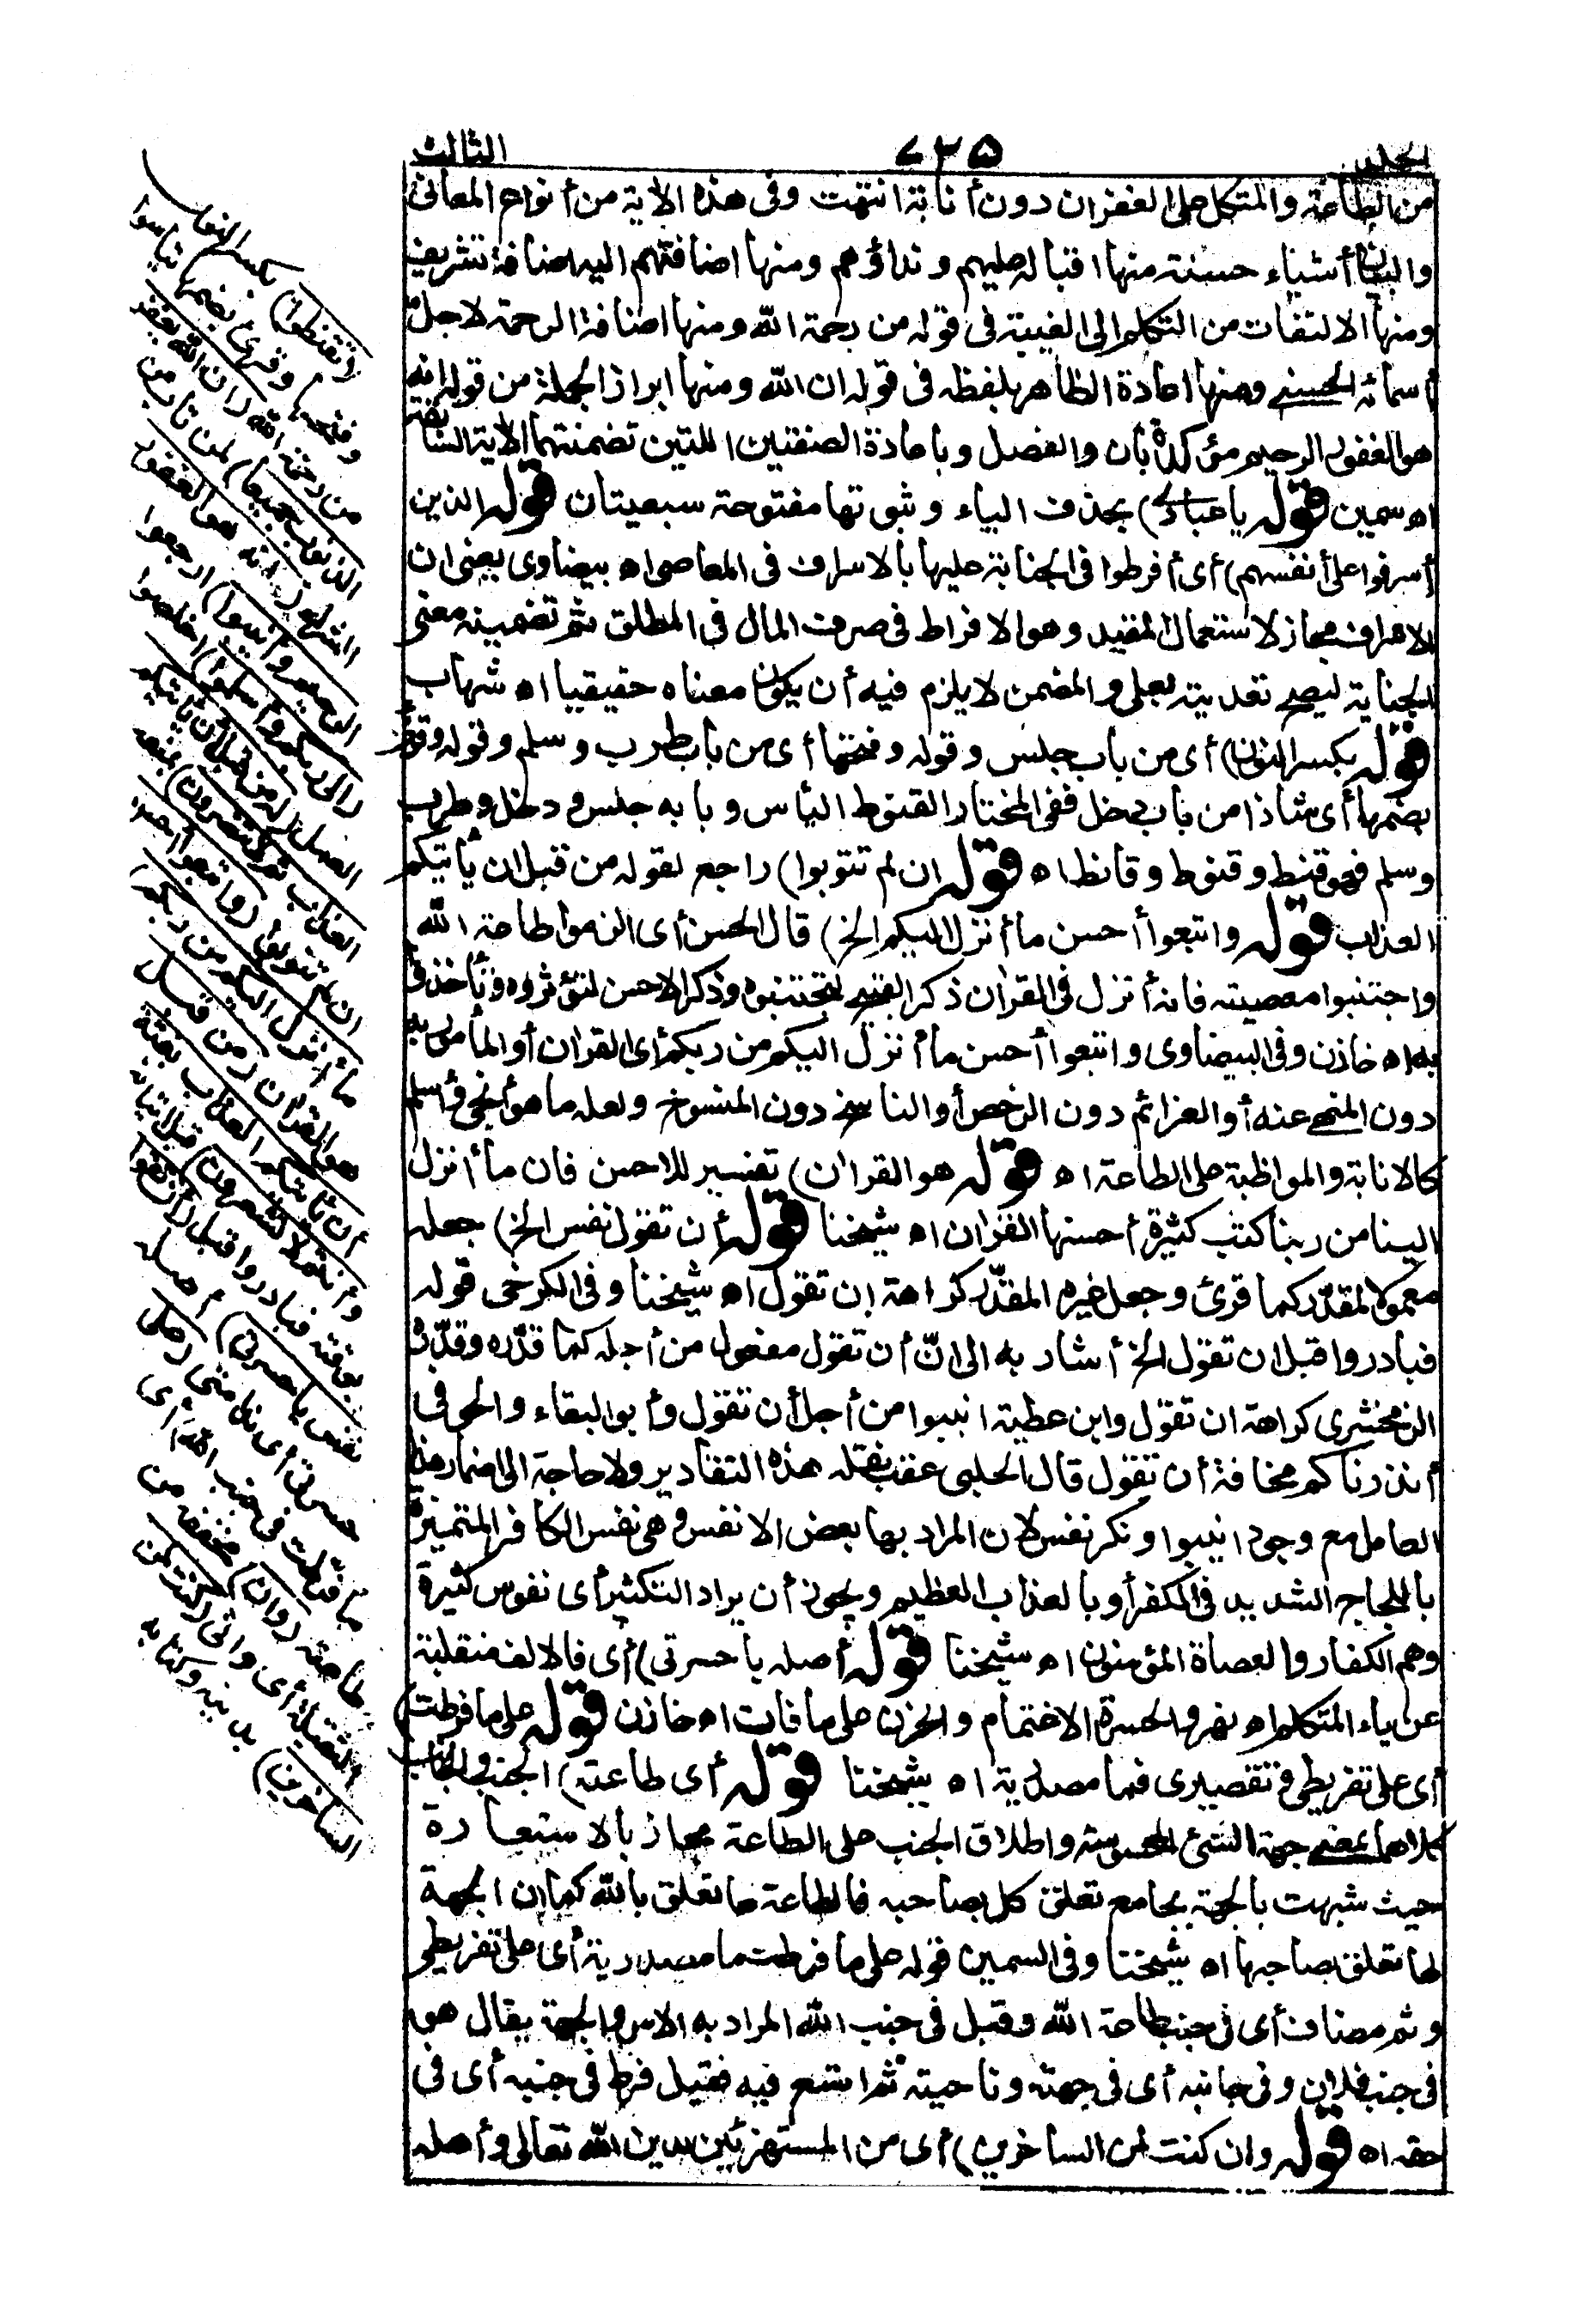 الجلد
٧٣٥
الثالث
من الطاعة والمتكل على الغفران دون أنابة انتهت وفى هذه الاية من أنواع المعانى
والبيان أشياء حسنة منها اقباله عليهم ونداؤهم ومنها اضافتهم اليه اضافة تشريف
ومنها الالتفات من التكلم الى الغيبة فى قوله من رحمة الله ومنها اضافة الرحمة لاجل
أسمائه الحسنى ومنها اعادة الظاهر بلفظه فى قوله ان الله ومنها ابراز الجملة من قوله انه
هو الغفور الرحيم مؤكدة بأن والفصل وباعادة الصفتين اللتين تضمنتهما الاية السابقة
اه سمين قوله يا عبادى) بحذف الياء وثبوتها مفتوحة سبعيتان قوله الذين
أسرفوا على أنفسهم) أى أفرطوا فى الجناية عليها بالاسراف فى المعاصى اه بيضاوى يعنى ان
الاسراف مجاز لاستعمال المقيد وهو الافراط فى صرف المال فى المطلق ثم تضمينه معنى
الجناية ليصح تعديته بعلى والمضمن لا يلزم فيه أن يكون معناه حقيقيا اه شهاب
قوله بكسر النون) أى من باب جلس وقوله وفتحها أى من باب طرب وسلم وقوله وقرئ
بضمها أى شاذا من باب دخل ففى المختار القنوط اليأس وبابه جلس ودخل وطرب
وسلم فهو قنط وقنوط وقانط اه قوله ان لم تتوبوا) راجع لقوله من قبل ان يأتيكم
العذاب قوله واتبعوا أحسن ما أنزل اليكم الخ) قال الحسن أى الزموا طاعة الله
واجتنبوا معصيته فانه أنزل فى القرآن ذكر القبيح لتجتنبوه وذكر الاحسن لتؤثروه وتأخذوا
به اه خازن وفى البيضاوى واتبعوا أحسن ما أنزل اليكم من ربكم أى القرآن أو المأمور به
دون المنهى عنه أو العزائم دون الرخص أو الناسخ دون المنسوخ ولعله ما هو أنجى وأسلم
كالانابة والمواظبة على الطاعة اه قوله هو القرآن) تفسير للاحسن فان ما أنزل
الينا من ربنا كتب كثيرة أحسنها القرآن اه شيخنا قوله أن تقول نفس الخ) جعله
معمولا لمقدر كما قرئ وجعل غيره المقدّر كراهة ان تقول اه شيخنا وفى الكرخى قوله
فبادروا قبل ان تقول الخ أشار به الى انّ أن تقول مفعول من أجله كما قدّره وقدّره
الزمخشرى كراهة ان تقول وابن عطية انيبوا من أجل أن تقول وأبو البقاء والحوفى
أنذرناكم مخافة أن تقول قال الحلبى عقب نقله هذه التقادير ولا حاجة الى اضمار هذا
العامل مع وجود انيبوا ونكر نفس لان المراد بها بعض الانفس وهى نفس الكافر المتميزة
باللجاج الشديد فى الكفر أو بالعذاب العظيم ويجوز أن يراد التكثير أى نفوس كثيرة
وهم الكفار والعصاة المؤمنون اه شيخنا قوله أصله يا حسرتى) أى فالالف منقلبة
عن ياء المتكلم اه نهر والحسرة الاغتمام والحزن على ما فات اه خازن قوله على ما فرطت)
أى على تفريطى وتقصيرى فما مصدرية اه شيخنا قوله أى طاعته) الجنب والجانب
كلاهما بمعنى جهة الشئ المحسوسة واطلاق الجنب على الطاعة مجاز بالاستعارة
حيث شبهت بالجهة بجامع تعلق كل بصاحبه فالطاعة لها تعلق بالله كما ان الجهة
لها تعلق بصاحبها اه شيخنا وفى السمين قوله على ما فرطت ما مصدرية أى على تفريطى
وثم مضاف أى فى جنب طاعة الله وقيل فى جنب الله المراد به الامر والجهة يقال هو
فى جنب فلان وفى جانبه أى فى جهته وناحيته ثم اتسع فيه فقيل فرط فى جنبه أى فى
حقه اه قوله وان كنت لمن الساخرين) أى من المستهزئين بدين الله تعالى وأصله
(تقنطوا) بكسر النون
وفتحها وقرئ بضمها تيأسوا
من رحمة الله (ان الله يغفر
الذنوب جميعا) لمن تاب من
الشرك (انه هو الغفور
الرحيم وأنيبوا) ارجعوا
(الى ربكم وأسلموا) اخلصوا
العمل (له من قبل أن يأتيكم
العذاب ثم لا تنصرون) بمنعه
ان لم تتوبوا (واتبعوا أحسن
ما أنزل اليكم من ربكم)
هو القرآن (من قبل
أن يأتيكم العذاب بغتة
وأنتم لا تشعرون) قبل اتيانه
بوقته فبادروا قبل (أن تقول
نفس يا حسرتى) أصله
حسرتى أى ندامتى (على
ما فرطت فى جنب الله) أى
طاعته (وان) مخففة من
الثقيلة أى وانى (كنت لمن
الساخرين) بدينه وكتابه